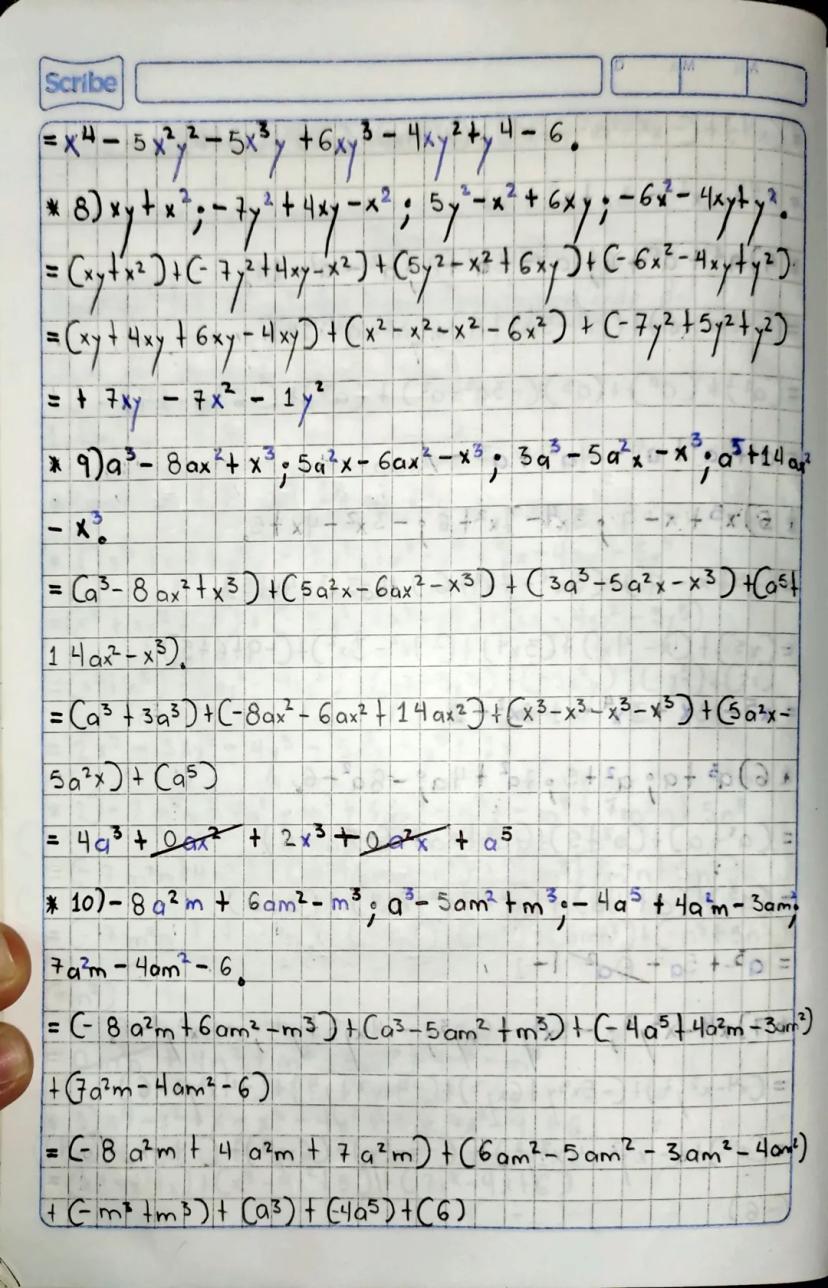 Scribe
D M A
= x⁴ - 5x²y² - 5x³y + 6xy³ - 4xy² + y⁴ - 6.
* 8) xy + x²; - 7y² + 4xy - x²; 5y² - x² + 6xy; - 6x² - 4xy + y².
= (xy + x²) + (- 7y² + 4xy - x²) + (5y² - x² + 6xy) + (- 6x² - 4xy + y²)
= (xy + 4xy + 6xy - 4xy) + (x² - x² - x² - 6x²) + (- 7y² + 5y² + y²)
= + 7xy - 7x² - 1y²
* 9) a³ - 8ax² + x³; 5a²x - 6ax² - x³; 3a³ - 5a²x - x³; a⁵ + 14ax²
- x³.
= (a³ - 8ax² + x³) + (5a²x - 6ax² - x³) + (3a³ - 5a²x - x³) + (a⁵ +
14ax² - x³).
= (a³ + 3a³) + (-8ax² - 6ax² + 14ax²) + (x³ - x³ - x³ - x³) + (5a²x -
5a²x) + (a⁵)
= 4a³ + 0ax² + 2x³ + 0a²x + a⁵
* 10) - 8a²m + 6am² - m³; a³ - 5am² + m³; - 4a⁵ + 4a²m - 3am²;
7a²m - 4am² - 6.
= (- 8a²m + 6am² - m³) + (a³ - 5am² + m³) + (- 4a⁵ + 4a²m - 3am²)
+ (7a²m - 4am² - 6)
= (- 8a²m + 4a²m + 7a²m) + (6am² - 5am² - 3am² - 4am²)
+ (- m³ + m³) + (a³) + (-4a⁵) + (6)